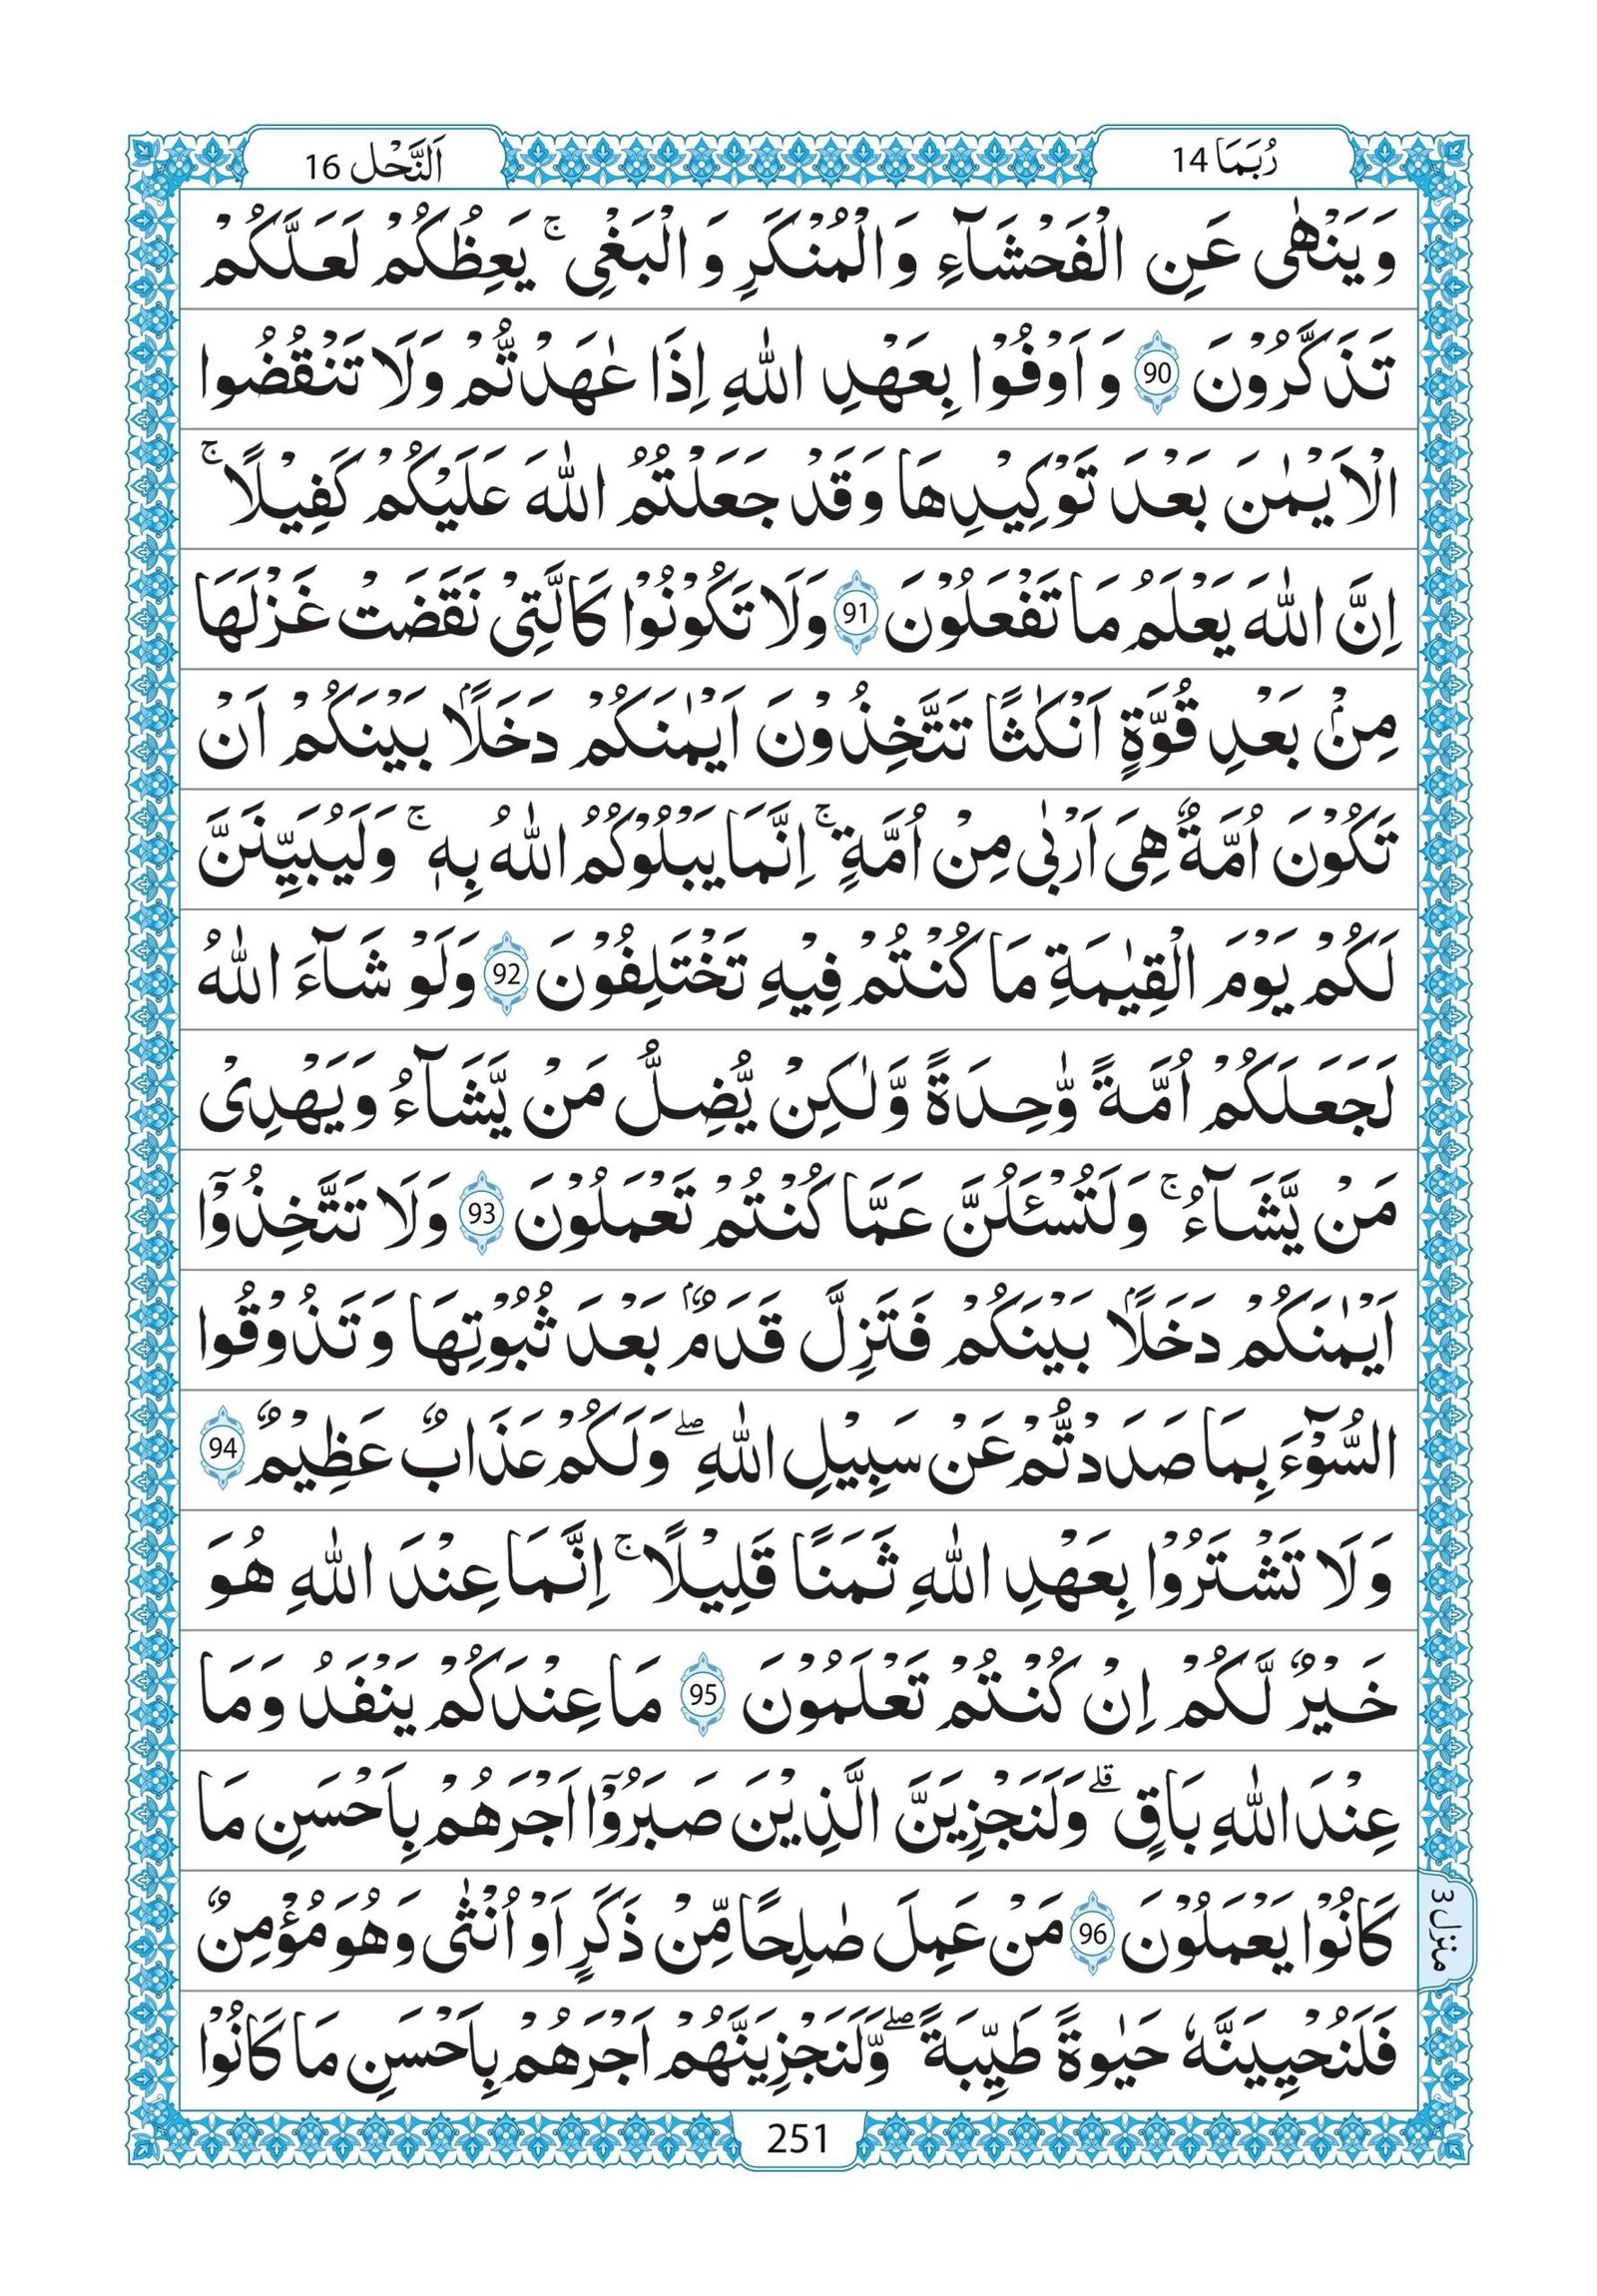 رُبَمَا 14
اَلنَّحْل 16
وَ يَنْهٰى عَنِ الْفَحْشَآءِ وَ الْمُنْكَرِ وَ الْبَغْىِ ۚ يَعِظُكُمْ لَعَلَّكُمْ
تَذَكَّرُوْنَ 90 وَ اَوْفُوْا بِعَهْدِ اللّٰهِ اِذَا عٰهَدْتُّمْ وَلَا تَنْقُضُوا
الْاَيْمٰنَ بَعْدَ تَوْكِيْدِهَا وَقَدْ جَعَلْتُمُ اللّٰهَ عَلَيْكُمْ كَفِيْلًا ۚ
اِنَّ اللّٰهَ يَعْلَمُ مَا تَفْعَلُوْنَ 91 وَلَا تَكُوْنُوْا كَالَّتِىْ نَقَضَتْ غَزْلَهَا
مِنْۢ بَعْدِ قُوَّةٍ اَنْكٰثًا تَتَّخِذُوْنَ اَيْمٰنَكُمْ دَخَلًاۢ بَيْنَكُمْ اَنْ
تَكُوْنَ اُمَّةٌ هِىَ اَرْبٰى مِنْ اُمَّةٍ ۚ اِنَّمَا يَبْلُوْكُمُ اللّٰهُ بِهٖ ۚ وَلَيُبَيِّنَنَّ
لَكُمْ يَوْمَ الْقِيٰمَةِ مَا كُنْتُمْ فِيْهِ تَخْتَلِفُوْنَ 92 وَلَوْ شَآءَ اللّٰهُ
لَجَعَلَكُمْ اُمَّةً وّٰحِدَةً وَّلٰكِنْ يُّضِلُّ مَنْ يَّشَآءُ وَيَهْدِىْ
مَنْ يَّشَآءُ ۚ وَلَتُسْـَٔلُنَّ عَمَّا كُنْتُمْ تَعْمَلُوْنَ 93 وَلَا تَتَّخِذُوْۤا
اَيْمٰنَكُمْ دَخَلًاۢ بَيْنَكُمْ فَتَزِلَّ قَدَمٌۢ بَعْدَ ثُبُوْتِهَا وَتَذُوْقُوا
السُّوْٓءَ بِمَا صَدَدْتُّمْ عَنْ سَبِيْلِ اللّٰهِ ۖ وَلَكُمْ عَذَابٌ عَظِيْمٌ 94
وَلَا تَشْتَرُوْا بِعَهْدِ اللّٰهِ ثَمَنًا قَلِيْلًا ۚ اِنَّمَا عِنْدَ اللّٰهِ هُوَ
خَيْرٌ لَّكُمْ اِنْ كُنْتُمْ تَعْلَمُوْنَ 95 مَا عِنْدَكُمْ يَنْفَدُ وَمَا
عِنْدَ اللّٰهِ بَاقٍ ۗ وَلَنَجْزِيَنَّ الَّذِيْنَ صَبَرُوْۤا اَجْرَهُمْ بِاَحْسَنِ مَا
كَانُوْا يَعْمَلُوْنَ 96 مَنْ عَمِلَ صٰلِحًا مِّنْ ذَكَرٍ اَوْ اُنْثٰى وَهُوَ مُؤْمِنٌ
فَلَنُحْيِيَنَّهٗ حَيٰوةً طَيِّبَةً ۖ وَّلَنَجْزِيَنَّهُمْ اَجْرَهُمْ بِاَحْسَنِ مَا كَانُوْا
منزل 3
251